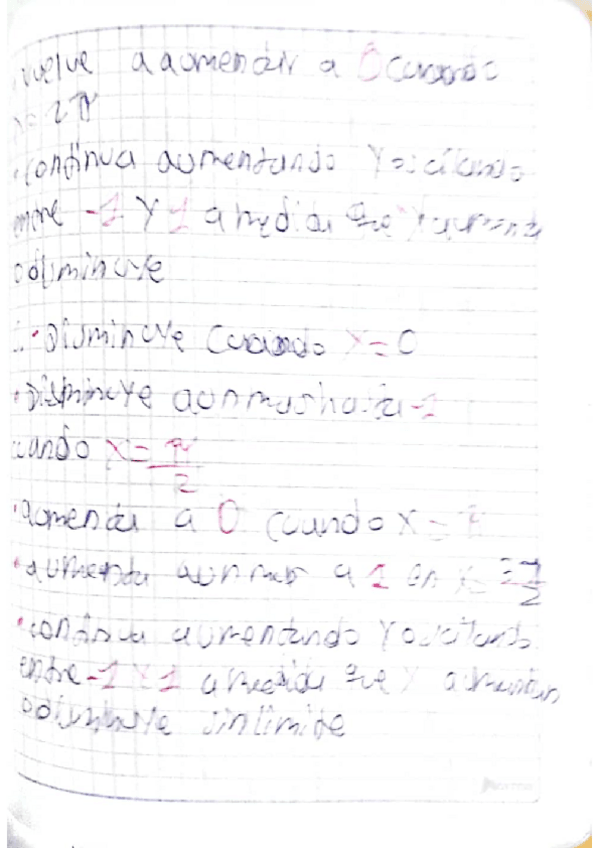 vuelve a aumentar a 0 cuando
x=2π
•continua aumentando Y oscilando
entre -1 Y 1 a medida que X aumenta
o disminuye
•Disminuye cuando X=0
•Disminuye aun mas hasta -1
cuando X=π/2
•aumenta a 0 cuando X=
•aumenta aun mas a 1 en
•continua aumentando Y oscilando
entre -1 Y 1 a medida que X aumenta
o disminuye sin limite
norma